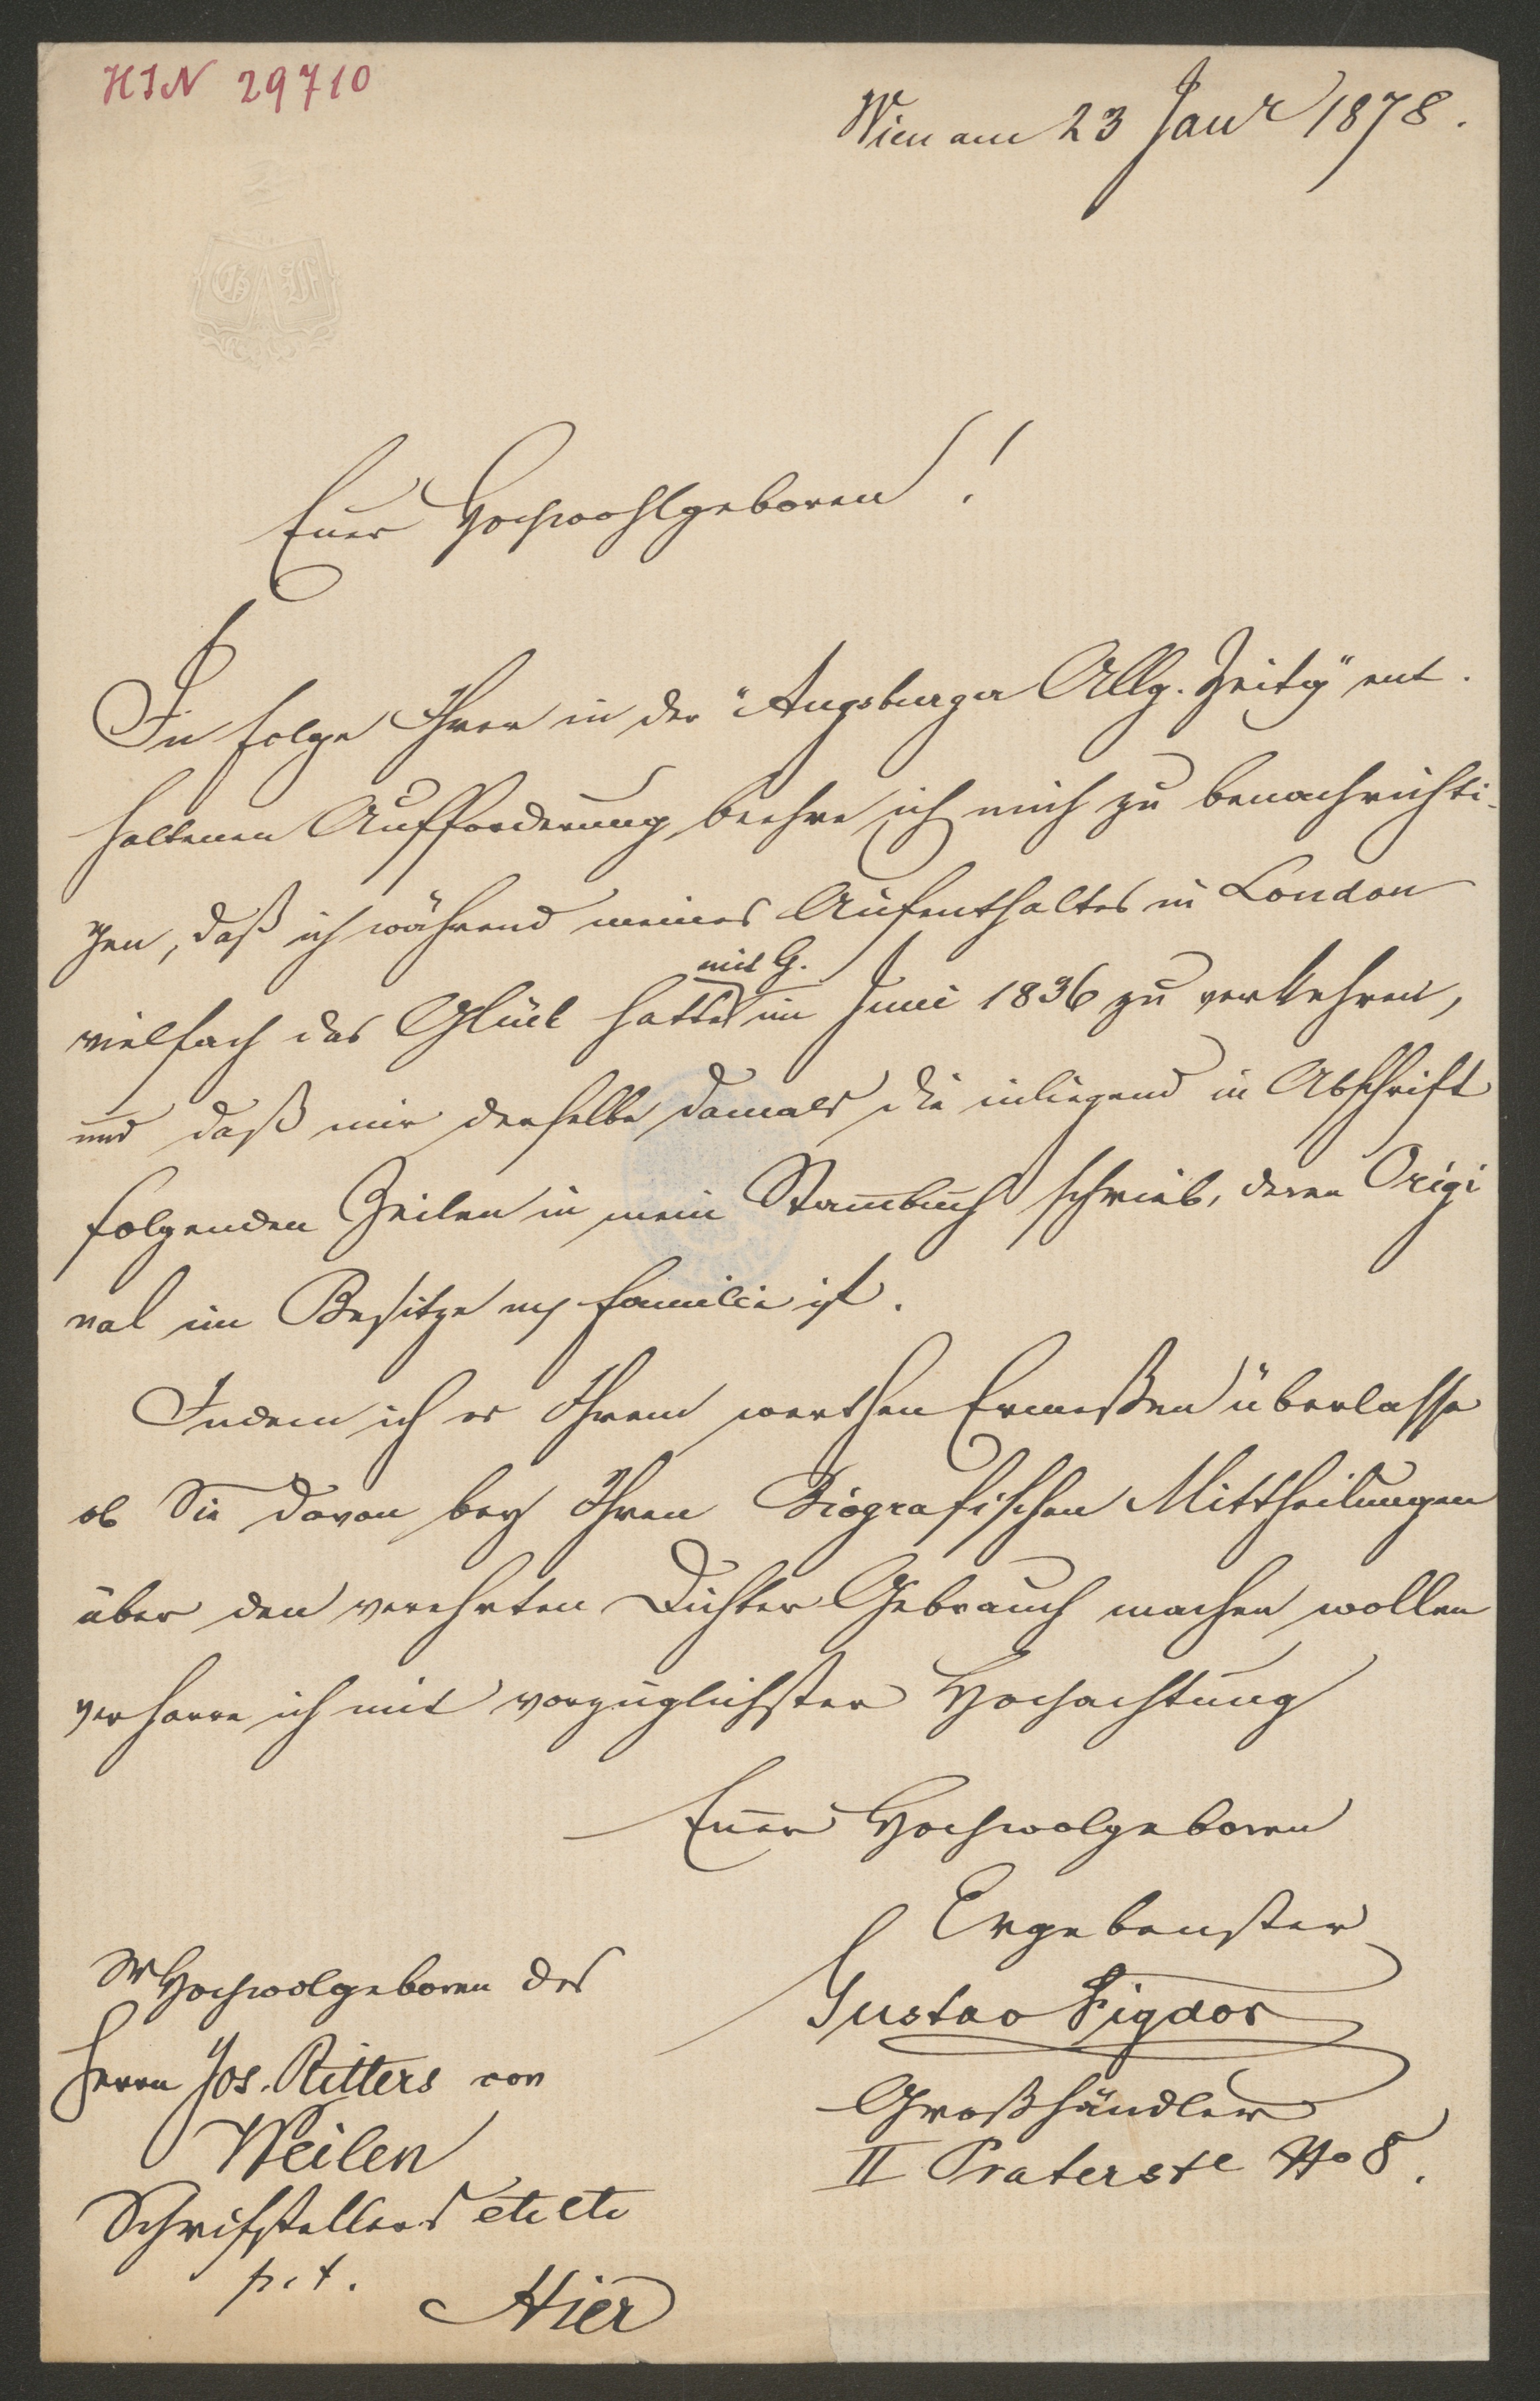 HIN 29710
Wien am 23 Janr 1878.
Euer Hochwohlgeboren!
In Folge Ihrer in der "Augsburger Allg. Zeitg" ent-
haltenen Aufforderung beehre ich mich zu benachrichti-
gen, daß ich während meines Aufenthaltes in London
mit G.
vielfach das Glück hatte im Juni 1836 zu verkehren,
und daß mir derselbe damals die inliegend in Abschrift
folgenden Zeilen in mein Stam̅buch schrieb, deren Origi
nal im Besitze mr Familie ist.
Indem ich es Ihrem werthen Ermeßen überlasse
ob Sie davon bey Ihren Biografischen Mittheilungen
über den verehrten Dichter Gebrauch machen wollen
verharre ich mit vorzüglichster Hochachtung
Euer Hochwolgeboren
Ergebenster
Gustav Figdor
Großhändler
II Praterste No 8.
Sr Hochwolgeboren des
Herrn Jos. Ritters von
Weilen
Schriftstellers etc etc
p. t.
Hier